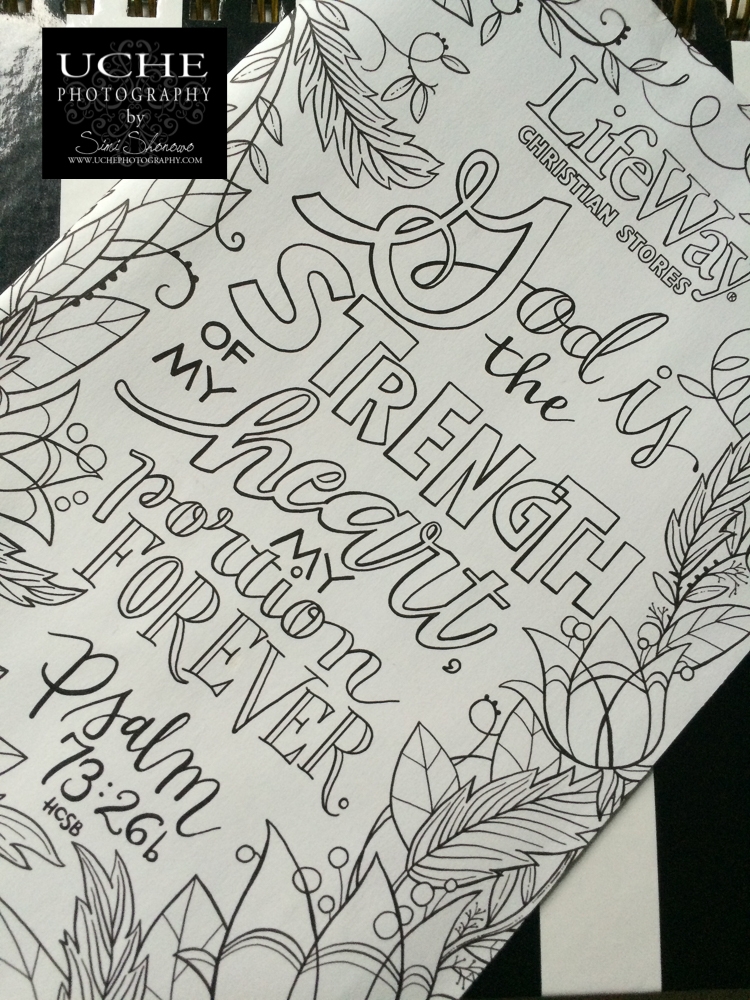 UCHE
PHOTOGRAPHY
by
Simi Shonowo
WWW.UCHEPHOTOGRAPHY.COM
LifeWay®
CHRISTIAN STORES
God is
the
STRENGTH
OF
MY
heart,
MY
portion
FOREVER.
Psalm
73:26b
HCSB